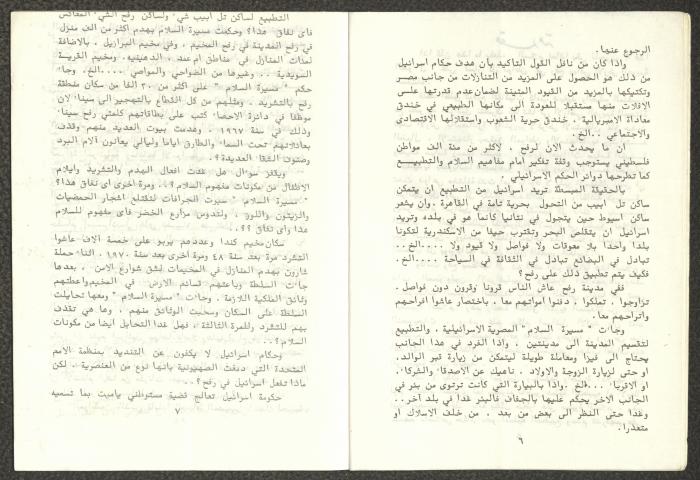 الرجوع عنها.
واذا كان من نافل القول التأكيد بأن هدف حكام اسرائيل
من ذلك هو الحصول على المزيد من التنازلات من جانب مصر
وتكتيكها بالمزيد من القيود المتينة لضمان عدم قدرتها على
الافلات منها مستقبلا للعودة الى مكانها الطبيعي في خندق
معاداة الامبريالية ، خندق حرية الشعوب واستقلالها الاقتصادى
والاجتماعي ..الخ.
ان ما يحدث الان لرفح ، لاكثر من مئة الف مواطن
فلسطيني يستوجب وقفة تفكير أمام مفاهيم السلام والتطبيع
كما تطرحها دوائر الحكم الاسرائيلي .
بالحقيقة المبسطة تريد اسرائيل من التطبيع ان يتمكن
ساكن تل ابيب من التجول بحرية تامة في القاهرة .وان يشعر
ساكن اسيوط حين يتجول في نتانيا كأنما هو في بلده وتريد
اسرائيل ان يتقلص البحر وتقترب حيفا من الاسكندرية لتكونا
بلدا واحدا بلا معوقات ولا فواصل ولا قيود ولا ....الخ ..
تبادل في البضائع تبادل في الثقافة في السياحة ....الخ .
فكيف يتم تطبيق ذلك على رفح؟
ففي مدينة رفح عاش الناس قرونا وقرون دون فواصل.
تزاوجوا ، تملكوا ، دفنوا امواتهم معا ، باختصار عاشوا افراحهم
واتراحهم معا .
وجاءت " مسيرة السلام" المصرية الاسرائيلية ، والتطبيع
لتقسيم المدينة الى مدينتين . واذا الفرد في هذا الجانب
يحتاج الى فيزا ومعاملة طويلة ليتمكن من زيارة قبر الوالد،
او حتى لزيارة الزوجة والاولاد . ناهيك عن الاصدقاء والشركاء،
او الاقرباء ...الخ .واذا بالبيارة التي كانت ترتوى من بئر في
الجانب الاخر يحكم عليها بالجفاف فالبئر غدا في بلد آخر..
وغدا حتى النظر الى بعض من بعد ، من خلف الاسلاك او
متعذرا.
٦
التطبيع لساكن تل ابيب شيء ولساكن رفح الشيء المعاكس
فاى نفاق هذا؟ وحكمت مسيرة السلام بهدم اكثر من الف منزل
في رفح المدينة في رفح المخيم ، وفي مخيم البرازيل . بالاضافة
لمئات المنازل في مناطق ام عند ، الدهينيه ومخيم القرية
السويدية .. وغيرها من الضواحي والمواصي ....الخ. وجاء
حكم " مسيرة السلام " على اكثر من ٣٠ الفا من سكان منطقة
رفح بالتشريد . ومثلهم من كل القطاع بالتهجير الى سيناء لان
موظفا في دائرة الاحصاء كتب على بطاقاتهم كلمتي رفح سيناء
وذلك في سنة ١٩٦٧ . وهدمت بيوت العديد منهم وقذف
بعائلاتهم تحت السماء والطارق اياما وليالي يعانون آلام البرد
وصنوف الشقاء العديدة؟.
ويقفز سوءال هل غدت افعال الهدم والتشريد وايلام
الاطفال من مكونات مفهوم السلام؟.. ومرة اخرى اى نفاق هذا؟
" مسيرة السلام " سيرت الجرافات لتقتلع اشجار الحمضيات
والزيتون واللوز ، ولتدوس مزارع الخضر فاى مفهوم للسلام
هذا واى نفاق ؟؟.
سكان مخيم كندا وعددهم يربو على خمسة آلاف عاشوا
التشرد مرة بعد سنة ٤٨ ومرة أخرى بعد سنة ١٩٧٠ . اثناء حملة
شارون بهدم المنازل في المخيمات لشق شوارع الامن . بعدها
جاءت السلطة وباعتهم قسائم الارض في المخيم واعطتهم
وثائق الملكية اللازمة . وجاءت " مسيرة السلام " ومعها تحايلت
السلطة على السكان وسحبت الوثائق منهم . وها هي تقذف
بهم للتشرد وللمرة الثالثة ، فهل غدا التحايل ايضا من مكونات
السلام؟..
وحكام اسرائيل لا يكفون عن التنديد بمنظمة الامم
المتحدة التي دمغت الصهيونية بانها نوع من العنصرية . لكن
ماذا تفعل اسرائيل في رفح؟..
حكومة اسرائيل تعالج قضية مستوطني ياميت بما تسميه
٧